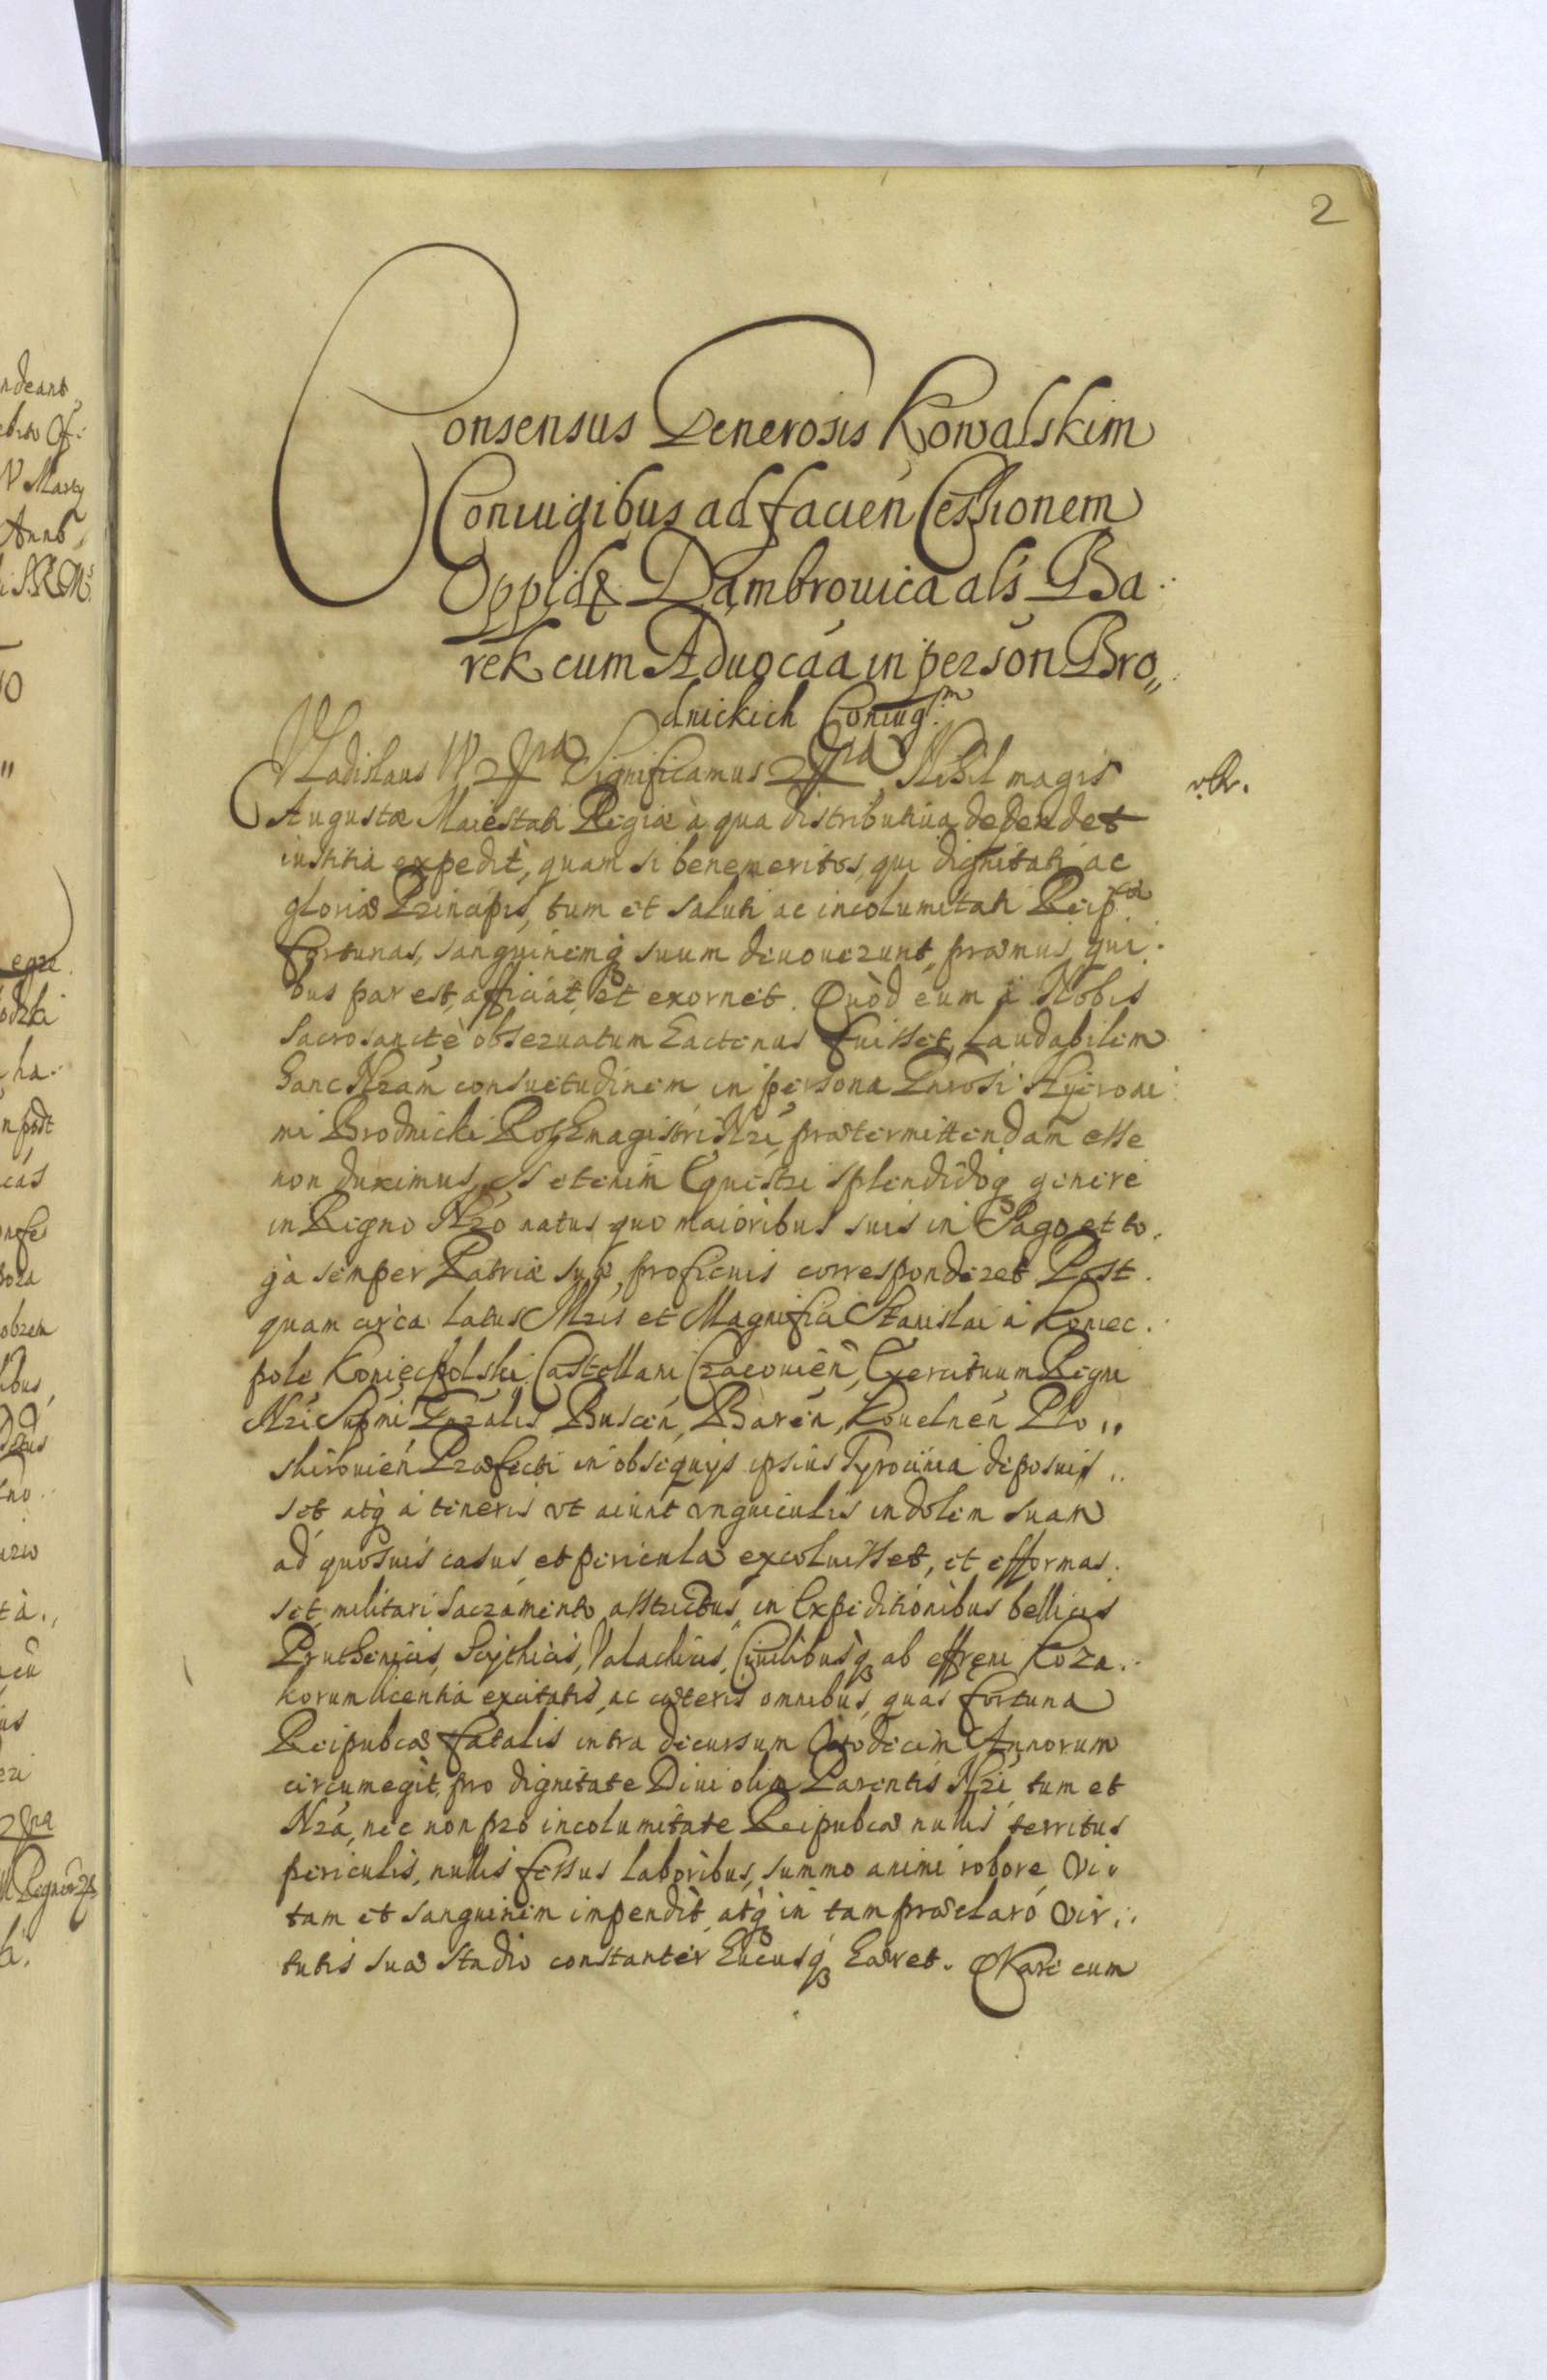 2
Consensus Generosis Kowalskim
Coniugibus ad facien Cessionem
Oppidi Dąmbrowica als Ba
rek cum Aduocaa in person Bro„
dnickich Coniug:m
Vladislaus IV Significamus Nihil magis
Augustæ Maiestati Regiæ à qua distributiua dependet
iustitia expedit, quam si benemeritos, qui dignitati ac
gloriæ Principis, tum et saluti ac incolumitati Reip:cæ
fortunas, sanguinemq suum deuouerunt, præmiis qui
bus par est, afficiat, et exornet. Quòd cum à Nobis
Sacrosanctè obseruatum hactenus fuisset, laudabilem
hanc Nram consuetudinem in persona Gnrosi Hyeroni
mi Brodnicki Rothmagistri Nri, prætermittendam esse
non duximus, Is etenim Equestri splendidoq genere
in Regno Nro natus quo maioribus suis in Sago et to
ga semper Patriæ suæ proficuis corresponderet Post
quam circa latus Mcis et Magnifici Stanislai à Koniec
pole Koniecpolski Castellani Cracouien, Exercituum Regni
Nri Supmi Gnralis Buscen, Baren, Kouelnen Plo„
skirouien Præfecti in obsequijs ipsius Tyrocinia deposuis
set atq à teneris vt aiunt vnguiculis indolem suam
ad quosuis casus et pericula excoluisset, et efformas
set, militari Sacramento astrictus in Expeditionibus bellicis
Pruthenicis, Scythicis, Valachicis, Ciuilibusq ab effręni Koza
korum licentia excitatis, ac cæteris omnibus, quas fortuna
Reipubcæ fatalis intra decursum Octodecim Annorum
circumegit, pro dignitate Diui olim Parentis Nri, tum et
Nra, nec non pro incolumitate Reipubcæ nullis territus
periculis, nullis fessus laboribus, summo animi robore Vi
tam et sanguinem impendit, atq in tam præclaro Vir
tutis suæ stadio constanter hucusq hæret.        cum